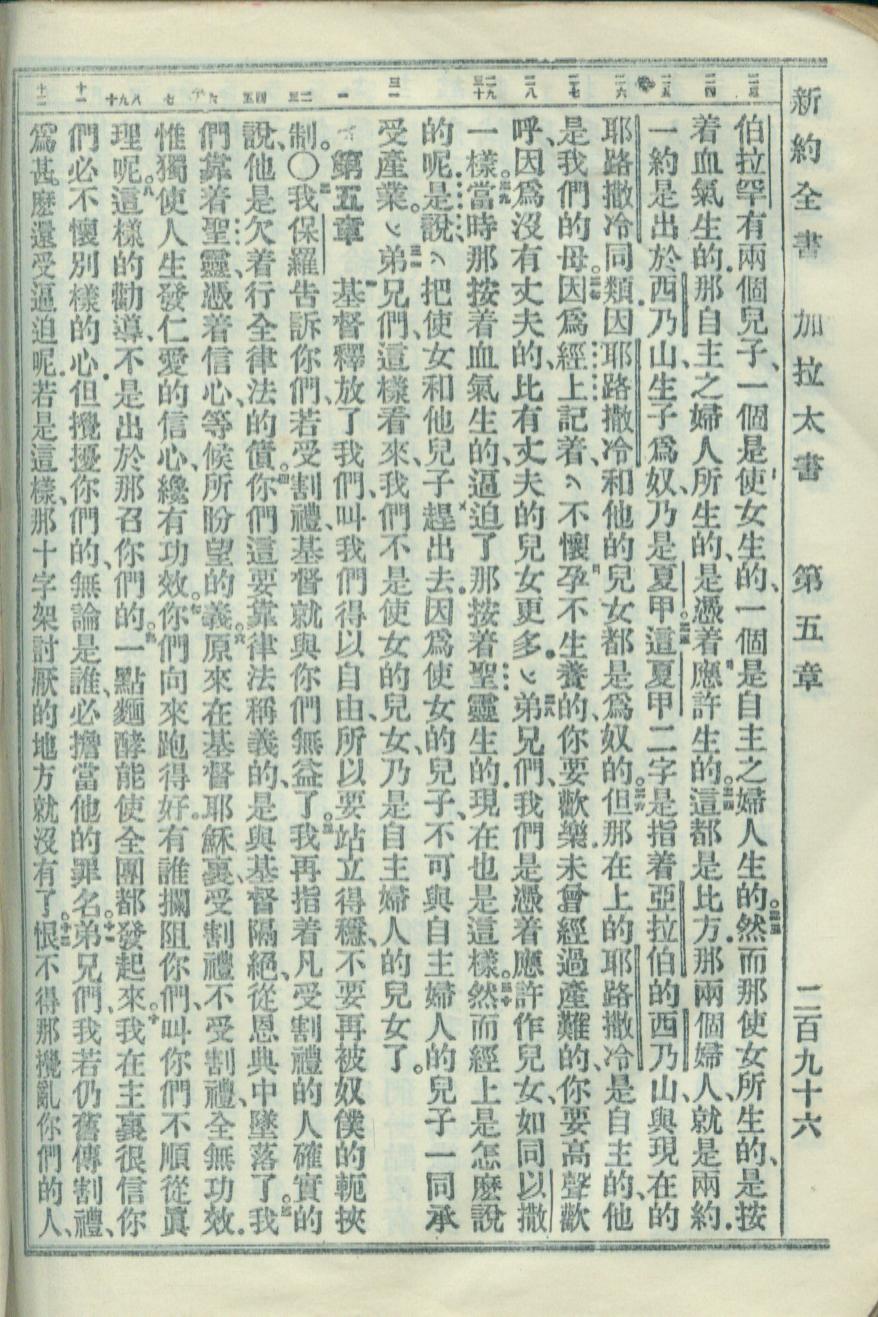 新約全書 加拉太書 第五章 二百九十六
二三 二四 二五 二六 二七 二八 二九 三十 三一 一 二 三 四 五 六 七 八 九 十 十一 十二
伯拉罕有兩個兒子、一個是使女生的、一個是自主之婦人生的。二三然而那使女所生的、是按
着血氣生的.那自主之婦人所生的、是憑着應許生的。二四這都是比方.那兩個婦人、就是兩約.
一約是出於西乃山、生子爲奴、乃是夏甲。二五這夏甲二字是指着亞拉伯的西乃山、與現在的
耶路撒冷同類.因耶路撒冷和他的兒女都是爲奴的。二六但那在上的耶路撒冷是自主的、他
是我們的母。二七因爲經上記着、不懷孕不生養的、你要歡樂.未曾經過產難的、你要高聲歡
呼.因爲沒有丈夫的比有丈夫的兒女更多。二八弟兄們、我們是憑着應許作兒女、如同以撒
一樣。二九當時那按着血氣生的、逼迫了那按着聖靈生的.現在也是這樣。三十然而經上是怎麼說
的呢.是說、把使女和他兒子趕出去.因爲使女的兒子、不可與自主婦人的兒子一同承
受產業。三一弟兄們、這樣看來、我們不是使女的兒女、乃是自主婦人的兒女了。
第五章 基督釋放了我們、叫我們得以自由.所以要站立得穩、不要再被奴僕的軛挾
制。〇二我保羅告訴你們、若受割禮、基督就與你們無益了。三我再指着凡受割禮的人確實的
說、他是欠着行全律法的債。四你們這要靠律法稱義的、是與基督隔絕、從恩典中墜落了。五我
們靠着聖靈、憑着信心、等候所盼望的義。六原來在基督耶穌裏、受割禮不受割禮、全無功效.
惟獨使人生發仁愛的信心、纔有功效。七你們向來跑得好.有誰攔阻你們、叫你們不順從眞
理呢。八這樣的勸導、不是出於那召你們的。九一點麵酵能使全團都發起來。十我在主裏很信你
們必不懷別樣的心.但攪擾你們的、無論是誰、必擔當他的罪名。十一弟兄們、我若仍舊傳割禮、
爲甚麼還受逼迫呢.若是這樣、那十字架討厭的地方就沒有了。十二恨不得那攪亂你們的人、